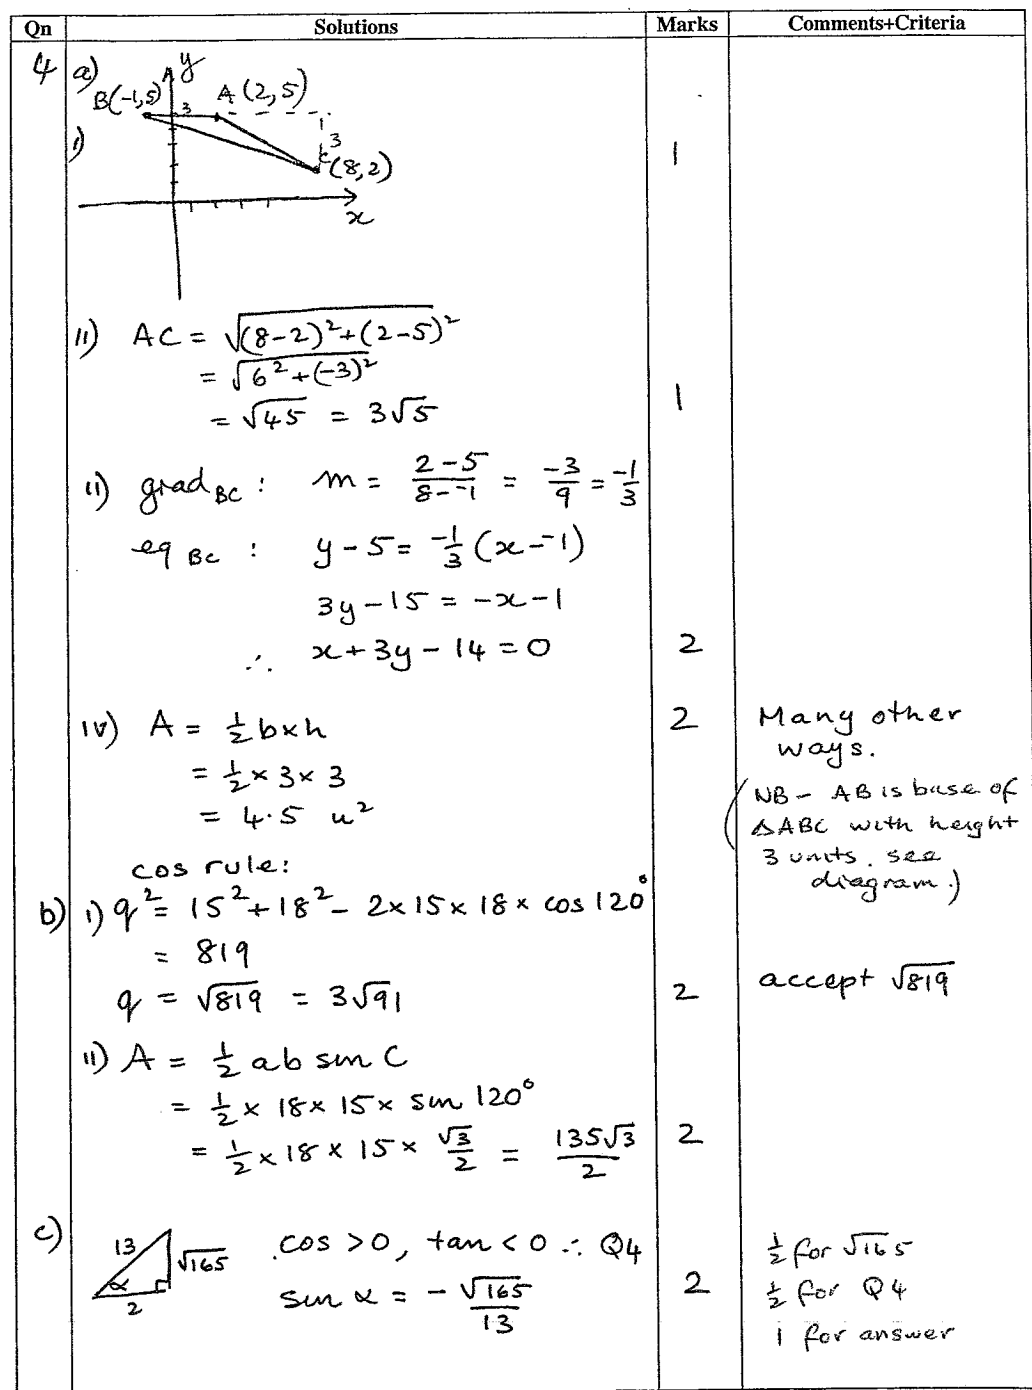 Qn Solutions Marks Comments+Criteria
4 a)
y
B(-1,5) A(2,5)
3
i) 3 1
C(8,2)
x
ii) AC = √((8-2)²+(2-5)²)
= √(6²+(-3)²)
= √45 = 3√5 1
ii) grad BC : m = (2-5)/(8--1) = -3/9 = -1/3
eq BC : y-5 = -1/3 (x--1)
3y-15 = -x-1
∴ x+3y-14=0 2
iv) A = ½b×h 2 Many other
ways.
= ½×3×3
= 4.5 u²
(NB- AB is base of
ΔABC with height
3 units. see
diagram.)
cos rule:
b) i) q² = 15²+18²- 2×15×18× cos 120°
= 819
q = √819 = 3√91 2 accept √819
ii) A = ½ ab sin C
= ½ × 18× 15× sin 120°
= ½ ×18×15× √3/2 = 135√3/2 2
c) 13 √165 α 2
cos >0, tan <0 ∴ Q4
sin α = - √165/13 2
½ for √165
½ for Q4
1 for answer